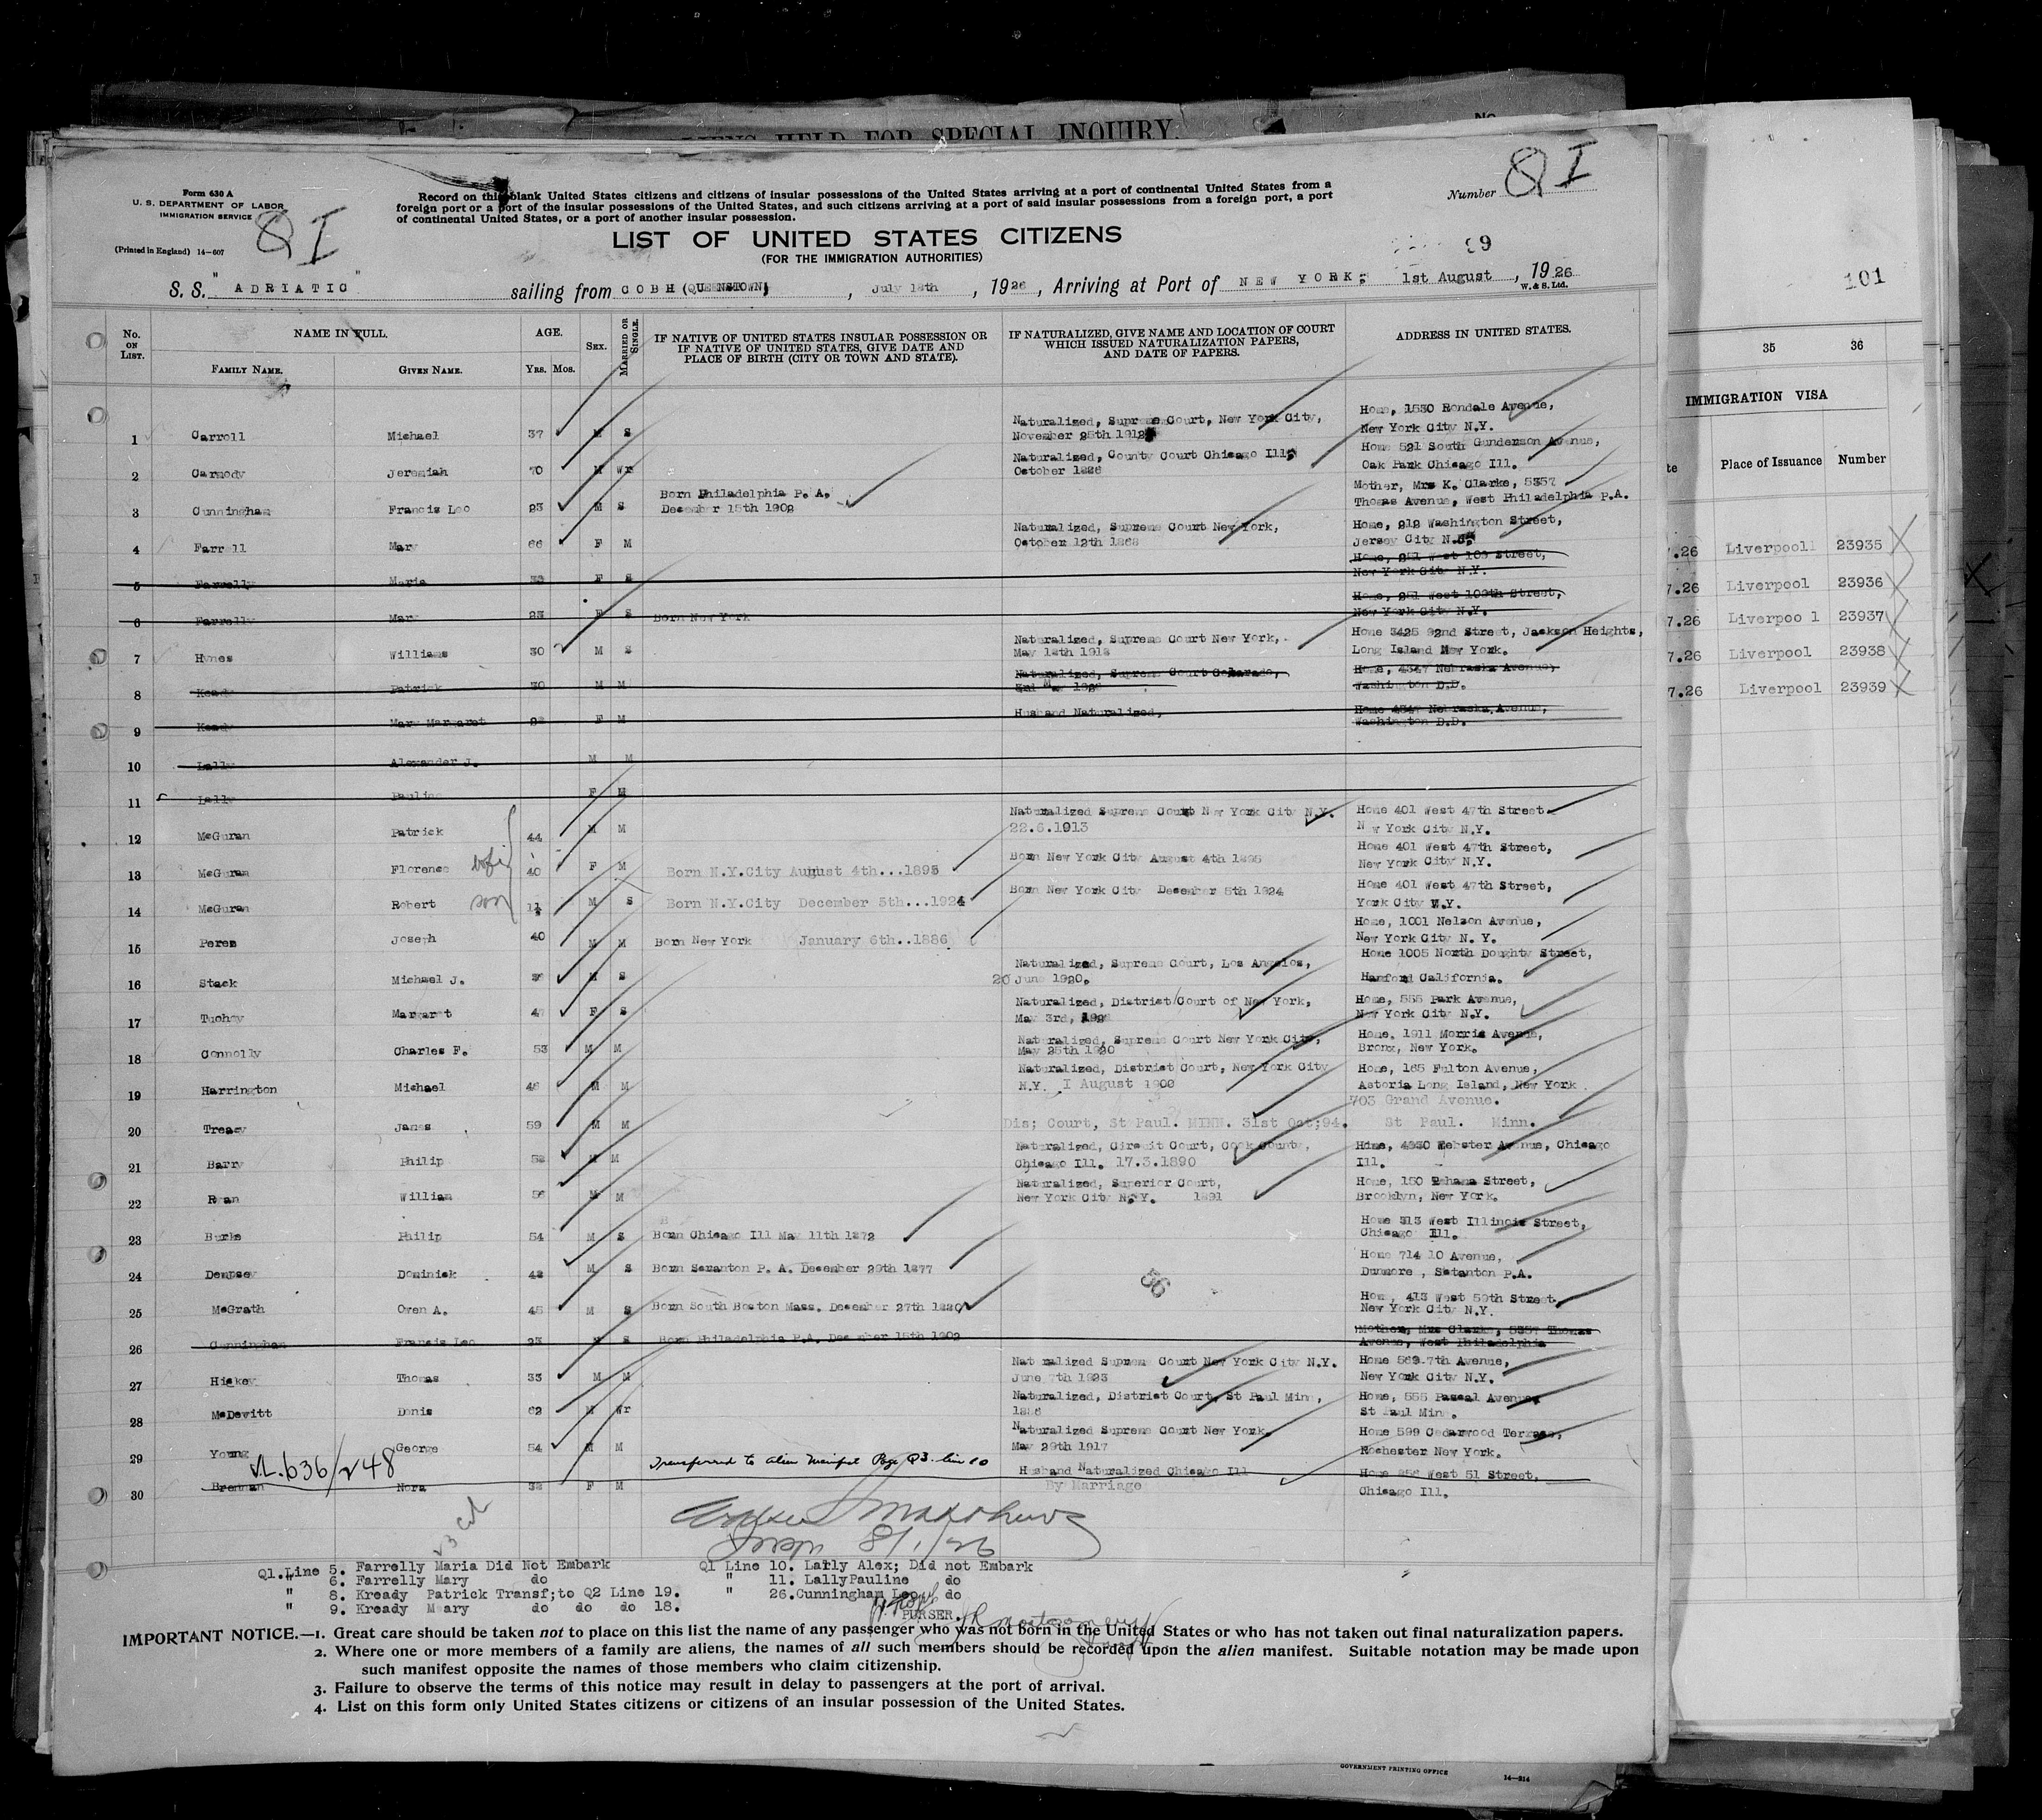 LIENS HELD FOR SPECIAL INQUIRY.
No.
Form 630 A
U. S. DEPARTMENT OF LABOR
IMMIGRATION SERVICE
(Printed in England) 14—607
Q I
Record on this blank United States citizens and citizens of insular possessions of the United States arriving at a port of continental United States from a
foreign port or a port of the insular possessions of the United States, and such citizens arriving at a port of said insular possessions from a foreign port, a port
of continental United States, or a port of another insular possession.
Number Q I
LIST OF UNITED STATES CITIZENS
(FOR THE IMMIGRATION AUTHORITIES)
39
S. S. "ADRIATIC" sailing from COBH (QUEENSTOWN), July 18th, 1926, Arriving at Port of NEW YORK; 1st August, 1926
W. & S. Ltd.
No. ON LIST.
NAME IN FULL.
FAMILY NAME. GIVEN NAME.
AGE.
YRS. MOS.
SEX.
MARRIED OR SINGLE.
IF NATIVE OF UNITED STATES INSULAR POSSESSION OR
IF NATIVE OF UNITED STATES, GIVE DATE AND
PLACE OF BIRTH (CITY OR TOWN AND STATE).
IF NATURALIZED, GIVE NAME AND LOCATION OF COURT
WHICH ISSUED NATURALIZATION PAPERS,
AND DATE OF PAPERS.
ADDRESS IN UNITED STATES.
1 Carroll Michael 37 M S Naturalized, Supreme Court, New York City, November 25th 1912 Home, 1530 Rondale Avenue, New York City N.Y.
2 Carmody Jeremiah 70 M Wr Naturalized, County Court Chicago Ill; October 1886 Home 521 South Gunderson Avenue, Oak Park Chicago Ill.
3 Cunningham Francis Leo 23 M S Born Philadelphia P.A. December 15th 1902 Mother, Mrs K. Clarke, 5357 Thomas Avenue, West Philadelphia P.A.
4 Farrell Mary 66 F M Naturalized, Supreme Court New York, October 12th 1868 Home, 212 Washington Street, Jersey City N.J.
5 Farrelly Maria 33 F S Home, 251 West 109 Street, New York City N.Y.
6 Farrelly Mary 23 F S Born New York Home, 251 West 109th Street, New York City N.Y.
7 Hynes Williams 30 M S Naturalized, Supreme Court New York, May 18th 1918 Home 3425 92nd Street, Jackson Heights, Long Island New York.
8 Keady Patrick 30 M M Naturalized, Supreme Court Colorado, Home, 4347 Nebraska Avenue, Washington D.D.
9 Keady Mary Margaret F M Husband Naturalized, Home 4347 Nebraska, Avenue, Washington D.D.
10 Lally Alexander J. M M
11 Lally Pauline F M
12 McGuran Patrick 44 M M Naturalized Supreme Court New York City N.Y. 22.6.1913 Home 401 West 47th Street N w York City N.Y.
13 McGuran Florence wife 40 F M Born N.Y.City August 4th...1895 Born New York City August 4th 1895 Home 401 West 47th Street, New York City N.Y.
14 McGuran Robert son M S Born N.Y.City December 5th...1924 Born New York City December 5th 1924 Home 401 West 47th Street, York City N.Y.
15 Peren Joseph 40 M M Born New York January 6th..1886 Home, 1001 Nelson Avenue, New York City N. Y.
16 Stack Michael J. M S Naturalized, Supreme Court, Los Angeles, 20 June 1920. Home 1005 North Doughty Street, Hamford California.
17 Tuohey Margaret F S Naturalized, District Court of New York, May 3rd, Home, 555 Park Avenue, New York City N.Y.
18 Connolly Charles F. 53 M M Naturalized, Supreme Court New York City, May 25th 1920 Home, 1911 Morris Avenue, Bronx, New York.
19 Harrington Michael 46 M M Naturalized, District Court, New York City N.Y. I August 1900 Home, 165 Fulton Avenue, Astoria Long Island, New York
20 Treacy James 59 M M Dis; Court, St Paul. MINN. 31st Oct;94. 703 Grand Avenue. St Paul. Minn.
21 Barry Philip 52 M M Naturalized, Circuit Court, Cook County, Chicago Ill. 17.3.1890 Home, 4930 Webster Avenue, Chicago Ill.
22 Ryan William 56 M M Naturalized, Superior Court, New York City N.Y. 1891 Home, 150 Street, Brooklyn, New York.
23 Burke Philip 54 M S Born Chicago Ill May 11th 1872 Home 313 West Illinois Street, Chicago Ill.
24 Dempsey Dominick 48 M S Born Scranton P. A. December 29th 1877 Home 714 10 Avenue, Dunmore, Sctanton P.A.
25 McGrath Owen A. 45 M S Born South Boston Mass. December 27th 1880 Home, 413 West 59th Street New York City N.Y.
36
26 Cunningham Francis Leo 23 M S Born Philadelphia P.A. December 15th 1902 Mother, Mrs Clarke, 5357 Thomas Avenue, West Philadelphia
27 Hickey Thomas 33 M M Naturalized Supreme Court New York City N.Y. June 7th 1923 Home 569 7th Avenue, New York City N.Y.
28 McDevitt Denis 62 M Wr Naturalized, District Court, St Paul Minn, 1886 Home, 555 Pascal Avenue St Paul Minn.
29 Young George 54 M M Naturalized Supreme Court New York May 29th 1917 Home 599 Cedarwood Terrace, Rochester New York.
V.L.636/248
Transferred to alien manifest Page Q3 line 20
30 Brennan Nora 32 F M Husband Naturalized Chicago Ill By Marriage Home West 51 Street, Chicago Ill.
Matthews
Insp 8/1/26
Q1.Line 5. Farrelly Maria Did Not Embark
" 6. Farrelly Mary do
" 8. Kready Patrick Transf;to Q2 Line 19.
" 9. Kready Mary do do do 18.
Q1 Line 10. Lally Alex; Did not Embark
" 11. LallyPauline do
" 26.Cunningham Leo do
PURSER.
JR Montgomery
IMPORTANT NOTICE.—1. Great care should be taken not to place on this list the name of any passenger who was not born in the United States or who has not taken out final naturalization papers.
2. Where one or more members of a family are aliens, the names of all such members should be recorded upon the alien manifest. Suitable notation may be made upon
such manifest opposite the names of those members who claim citizenship.
3. Failure to observe the terms of this notice may result in delay to passengers at the port of arrival.
4. List on this form only United States citizens or citizens of an insular possession of the United States.
GOVERNMENT PRINTING OFFICE
14—214
101
35 36
IMMIGRATION VISA
te Place of Issuance Number
7.26 Liverpool1 23935
7.26 Liverpool 23936
7.26 Liverpoo l 23937
7.26 Liverpool 23938
7.26 Liverpool 23939